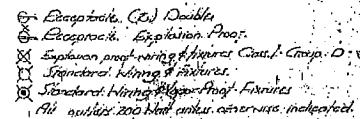 Receptacle (2) Double
Receptacle Explosion Proof
Explosion proof wiring & fixtures Class I Group D
Standard Wiring & fixtures.
Standard Wiring & Vapor Proof Fixtures
All outlets 200 Watt unless otherwise indicated.